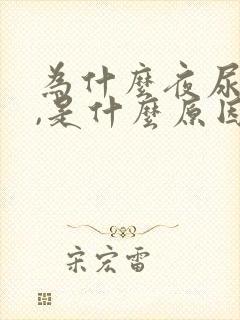 為什麼夜尿
,是什麼原因
宋宏雷